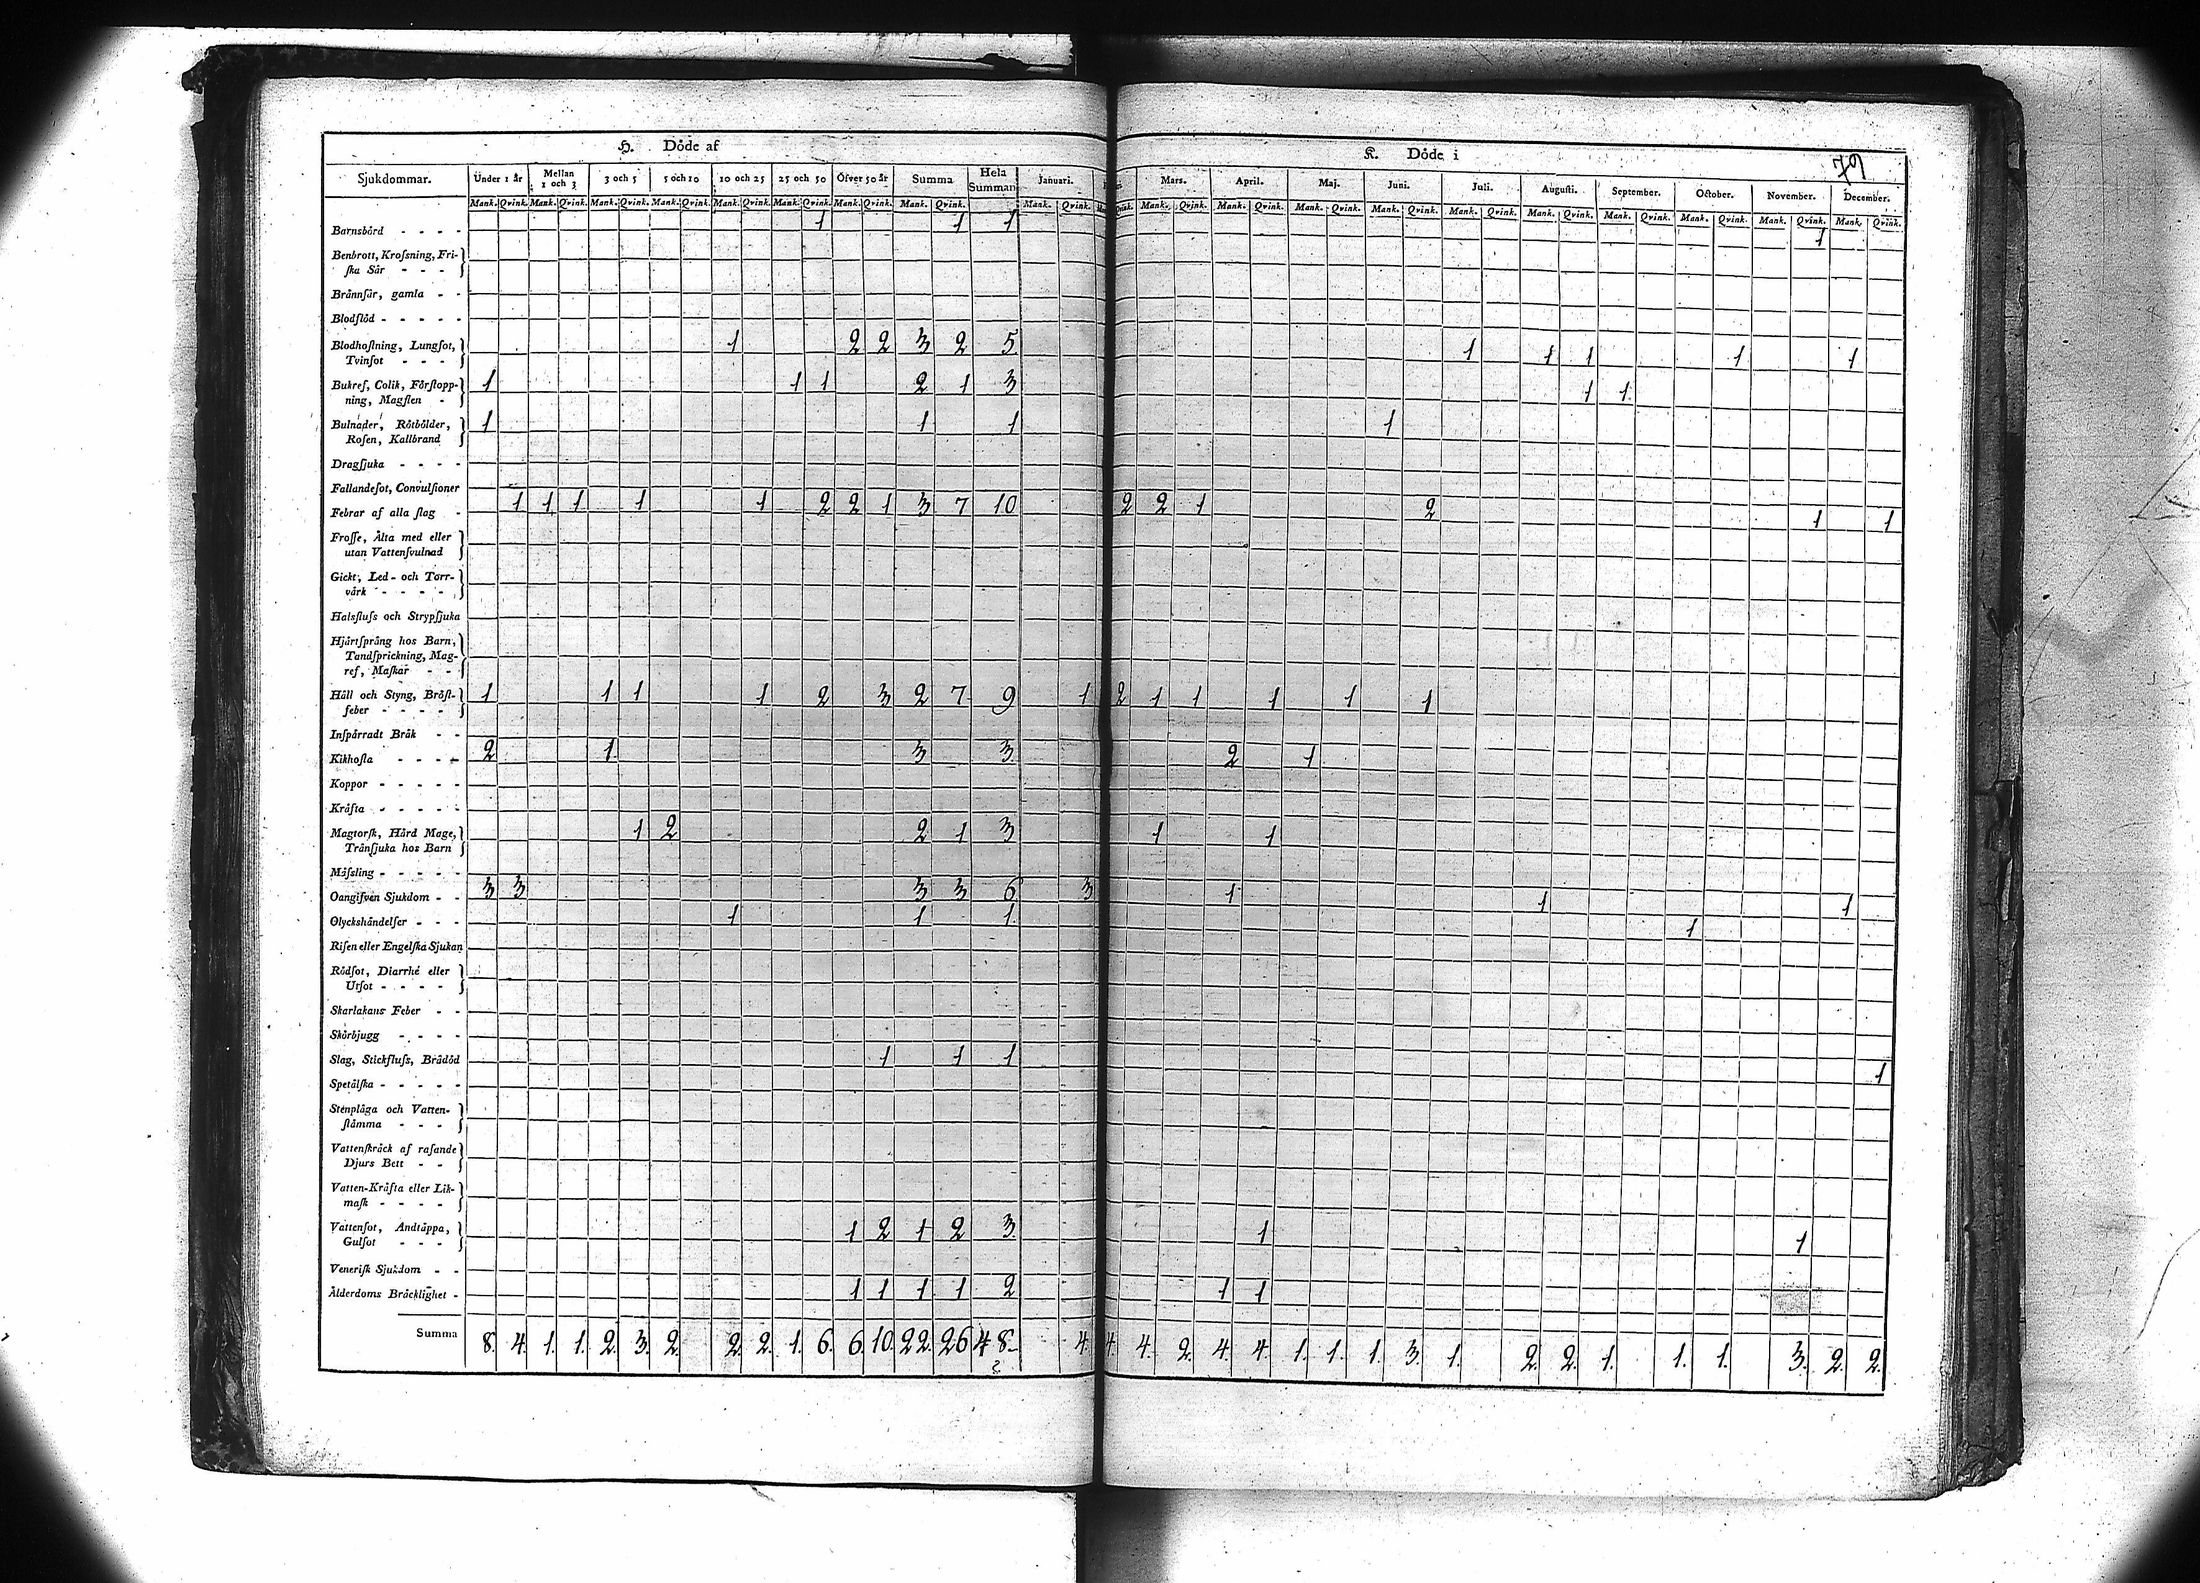 H. Döde af
K. Döde i
79
Sjukdommar. Under 1 år Mellan 1 och 3 3 och 5 5 och 10 10 och 25 25 och 50 Öfver 50 år Summa Hela Summan Januari. Mars. April. Maj. Juni. Juli. Augusti. September. October. November. December.
Mank. Qvink. Mank. Qvink. Mank. Qvink. Mank. Qvink. Mank. Qvink. Mank. Qvink. Mank. Qvink. Mank. Qvink. Mank. Qvink. Qvink. Mank. Qvink. Mank. Qvink. Mank. Qvink. Mank. Qvink. Mank. Qvink. Mank. Qvink. Mank. Qvink. Mank. Qvink. Mank. Qvink. Mank. Qvink.
Barnsbörd - - - - 1 1 1 1
Benbrott, Krosſning, Fri-
ſka Sår - - -
Brännſår, gamla - -
Blodflöd - - - - -
Blodhoſtning, Lungſot, 1 2 2 3 2 5 1 1 1 1 1
Tvinſot - - -
Bukref, Colik, Förſtopp- 1 1 1 2 1 3 1 1
ning, Magſten -
Bulnader, Rötbölder, 1 1 1 1
Roſen, Kallbrand
Dragſjuka - - - -
Fallandeſot, Convulſioner
Febrar af alla ſlag - 1 1 1 1 1 2 2 1 3 7 10 2 2 1 2 1 1
Froſſe, Älta med eller
utan Vattenſvulnad
Gickt, Led- och Torr-
värk - - - -
Halsfluſs och Strypſjuka
Hjärtſprång hos Barn,
Tandſprickning, Mag-
ref, Maſkar - -
Håll och Styng, Bröſt- 1 1 1 1 2 3 2 7 9 1 2 1 1 1 1 1
feber - - - -
Inſpärradt Bråk - -
Kikhoſta - - - - 2 1 3 3 2 1
Koppor - - - - -
Kräfta - - - - -
Magtorſk, Hård Mage, 1 2 2 1 3 1 1
Trånſjuka hos Barn
Mäſsling - - - - -
Oangifven Sjukdom - - 3 3 3 3 6 3 1 1 1
Olyckshändelſer - - - 1 1 1 1
Riſen eller Engelſka Sjukan
Rödſot, Diarrhé eller
Utſot - - - -
Skarlakans Feber - -
Skörbjugg - - - -
Slag, Stickfluſs, Brådöd 1 1 1 1
Spetälſka - - - - -
Stenplåga och Vatten-
ſtämma - - -
Vattenſkräck af raſande
Djurs Bett - -
Vatten-Kräfta eller Lik-
maſk - - - -
Vattenſot, Andtäppa, 1 2 1 2 3 1 1
Gulſot - - -
Veneriſk Sjukdom - -
Ålderdoms Bräcklighet - 1 1 1 1 2 1 1
Summa 8. 4. 1. 1. 2. 3. 2. 2. 2. 1. 6. 6. 10. 22. 26 48. 4. 4. 4. 2. 4. 4. 1. 1. 1. 3. 1. 2. 2. 1. 1. 1. 3. 2. 2.